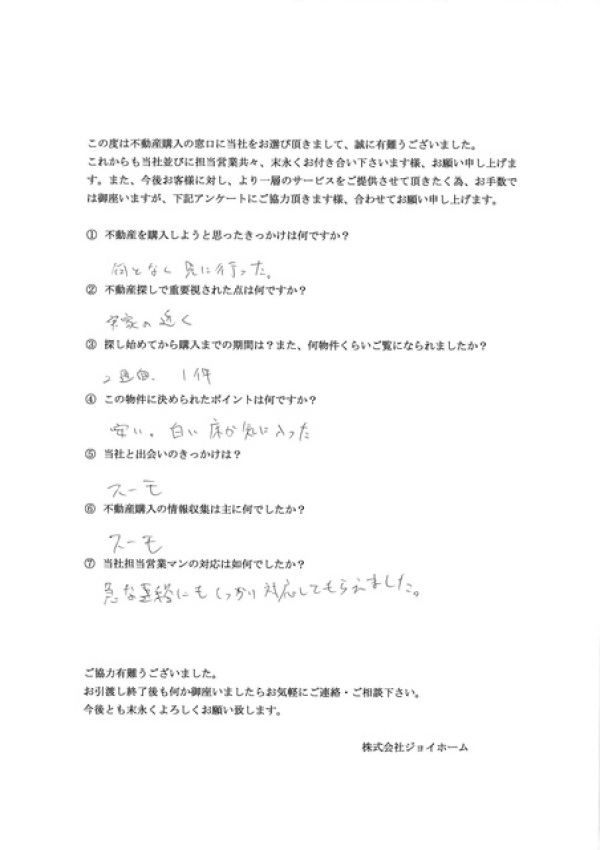 この度は不動産購入の窓口に当社をお選び頂きまして、誠に有難うございました。
これからも当社並びに担当営業共々、末永くお付き合い下さいます様、お願い申し上げま
す。また、今後お客様に対し、より一層のサービスをご提供させて頂きたく為、お手数で
は御座いますが、下記アンケートにご協力頂きます様、合わせてお願い申し上げます。
① 不動産を購入しようと思ったきっかけは何ですか？
何となく見に行った。
② 不動産探しで重要視された点は何ですか？
実家の近く
③ 探し始めてから購入までの期間は？また、何物件くらいご覧になられましたか？
2週間、1件
④ この物件に決められたポイントは何ですか？
安い。白い床が気に入った
⑤ 当社と出会いのきっかけは？
スーモ
⑥ 不動産購入の情報収集は主に何でしたか？
スーモ
⑦ 当社担当営業マンの対応は如何でしたか？
急な連絡にもしっかり対応してもらえました。
ご協力有難うございました。
お引渡し終了後も何か御座いましたらお気軽にご連絡・ご相談下さい。
今後とも末永くよろしくお願い致します。
株式会社ジョイホーム